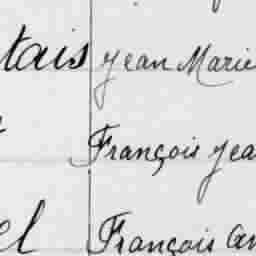 tais Jean Marie
François Jea
el François